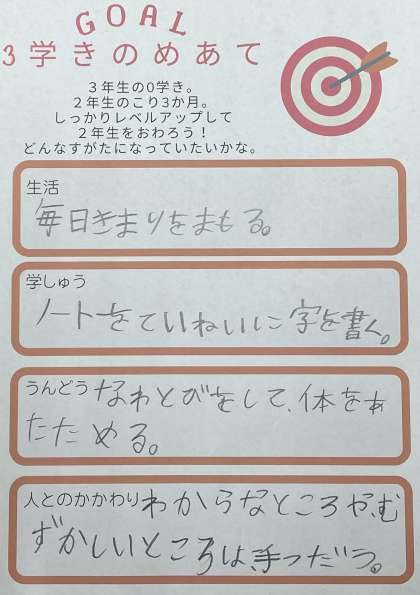 GOAL
3学きのめあて
3年生の0学き。
2年生のこり3か月。
しっかりレベルアップして
2年生をおわろう!
どんなすがたになっていたいかな。
生活
毎日きまりをまもる。
学しゅう
ノートをていねいに字を書く。
うんどう なわとびをして、体をあ
たためる。
人とのかかわり わからなところや、む
ずかしいところは、手つだう。